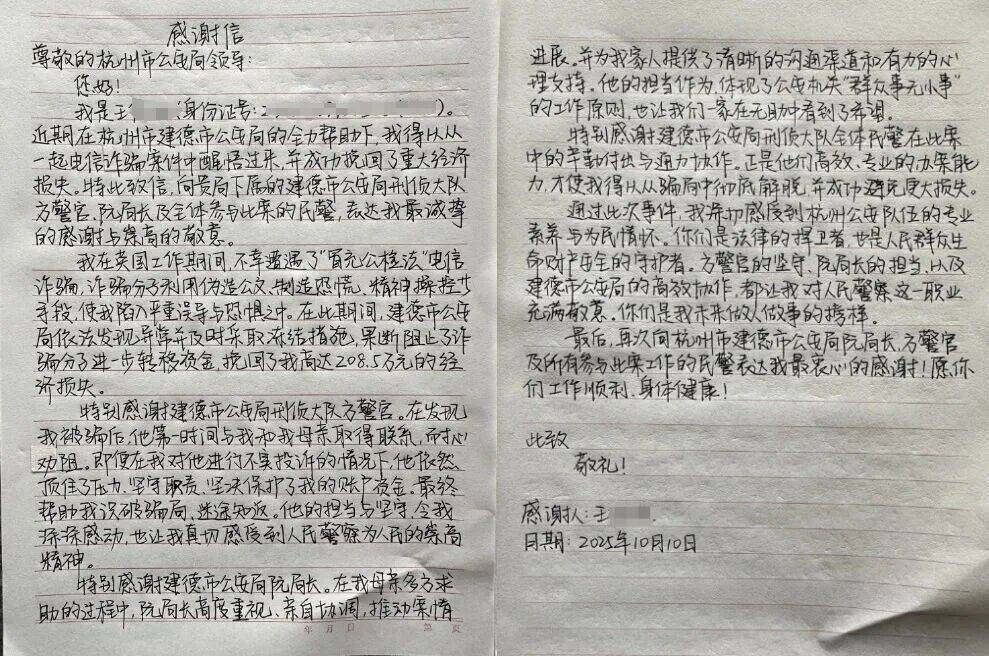 感谢信
尊敬的杭州市公安局领导:
您好!
我是王 (身份证号:2 )。
近期在杭州市建德市公安局的全力帮助下,我得以从
一起电信诈骗案件中醒悟过来,并成功挽回了重大经济
损失。特此致信,向贵局下属的建德市公安局刑侦大队
方警官、阮局长及全体参与此案的民警,表达我最诚挚
的感谢与崇高的敬意。
我在英国工作期间,不幸遭遇了"冒充公检法"电信
诈骗,诈骗分子利用伪造公文、制造恐慌、精神操控等
手段,使我陷入严重误导与恐惧之中。在此期间,建德市公安
局依法发现异常并及时采取冻结措施,果断阻止了诈
骗分子进一步转移资金,挽回了我高达208.5万元的经
济损失。
特别感谢建德市公安局刑侦大队方警官。在发现
我被骗后,他第一时间与我和我母亲取得联系,耐心
劝阻。即便在我对他进行不实投诉的情况下,他依然
顶住了压力、坚守职责、坚决保护了我的账户资金。最终
帮助我识破骗局、迷途知返。他的担当与坚守,令我
深深感动,也让我真切感受到人民警察为人民的崇高
精神。
特别感谢建德市公安局阮局长。在我母亲多方求
助的过程中,阮局长高度重视、亲自协调,推动案情
年 月 日 第 页
进展。并为我家人提供了清晰的沟通渠道和有力的心
理支持。他的担当作为,体现了公安机关"群众事无小事"
的工作原则,也让我们一家在无助中看到了希望。
特别感谢建德市公安局刑侦大队全体民警在此案
中的辛勤付出与通力协作。正是他们高效、专业的办案能
力,才使我得以从骗局中彻底解脱,并成功避免更大损失。
通过此次事件,我深切感受到杭州公安队伍的专业
素养与为民情怀。你们是法律的捍卫者,也是人民群众生
命财产安全的守护者。方警官的坚守、阮局长的担当,以及
建德市公安局的高效协作,都让我对人民警察这一职业
充满敬意。你们是我未来做人做事的榜样。
最后,再次向杭州市建德市公安局阮局长、方警官
及所有参与此案工作的民警表达我最衷心的感谢!愿你
们工作顺利,身体健康!
此致
敬礼!
感谢人:王
日期:2025年10月10日